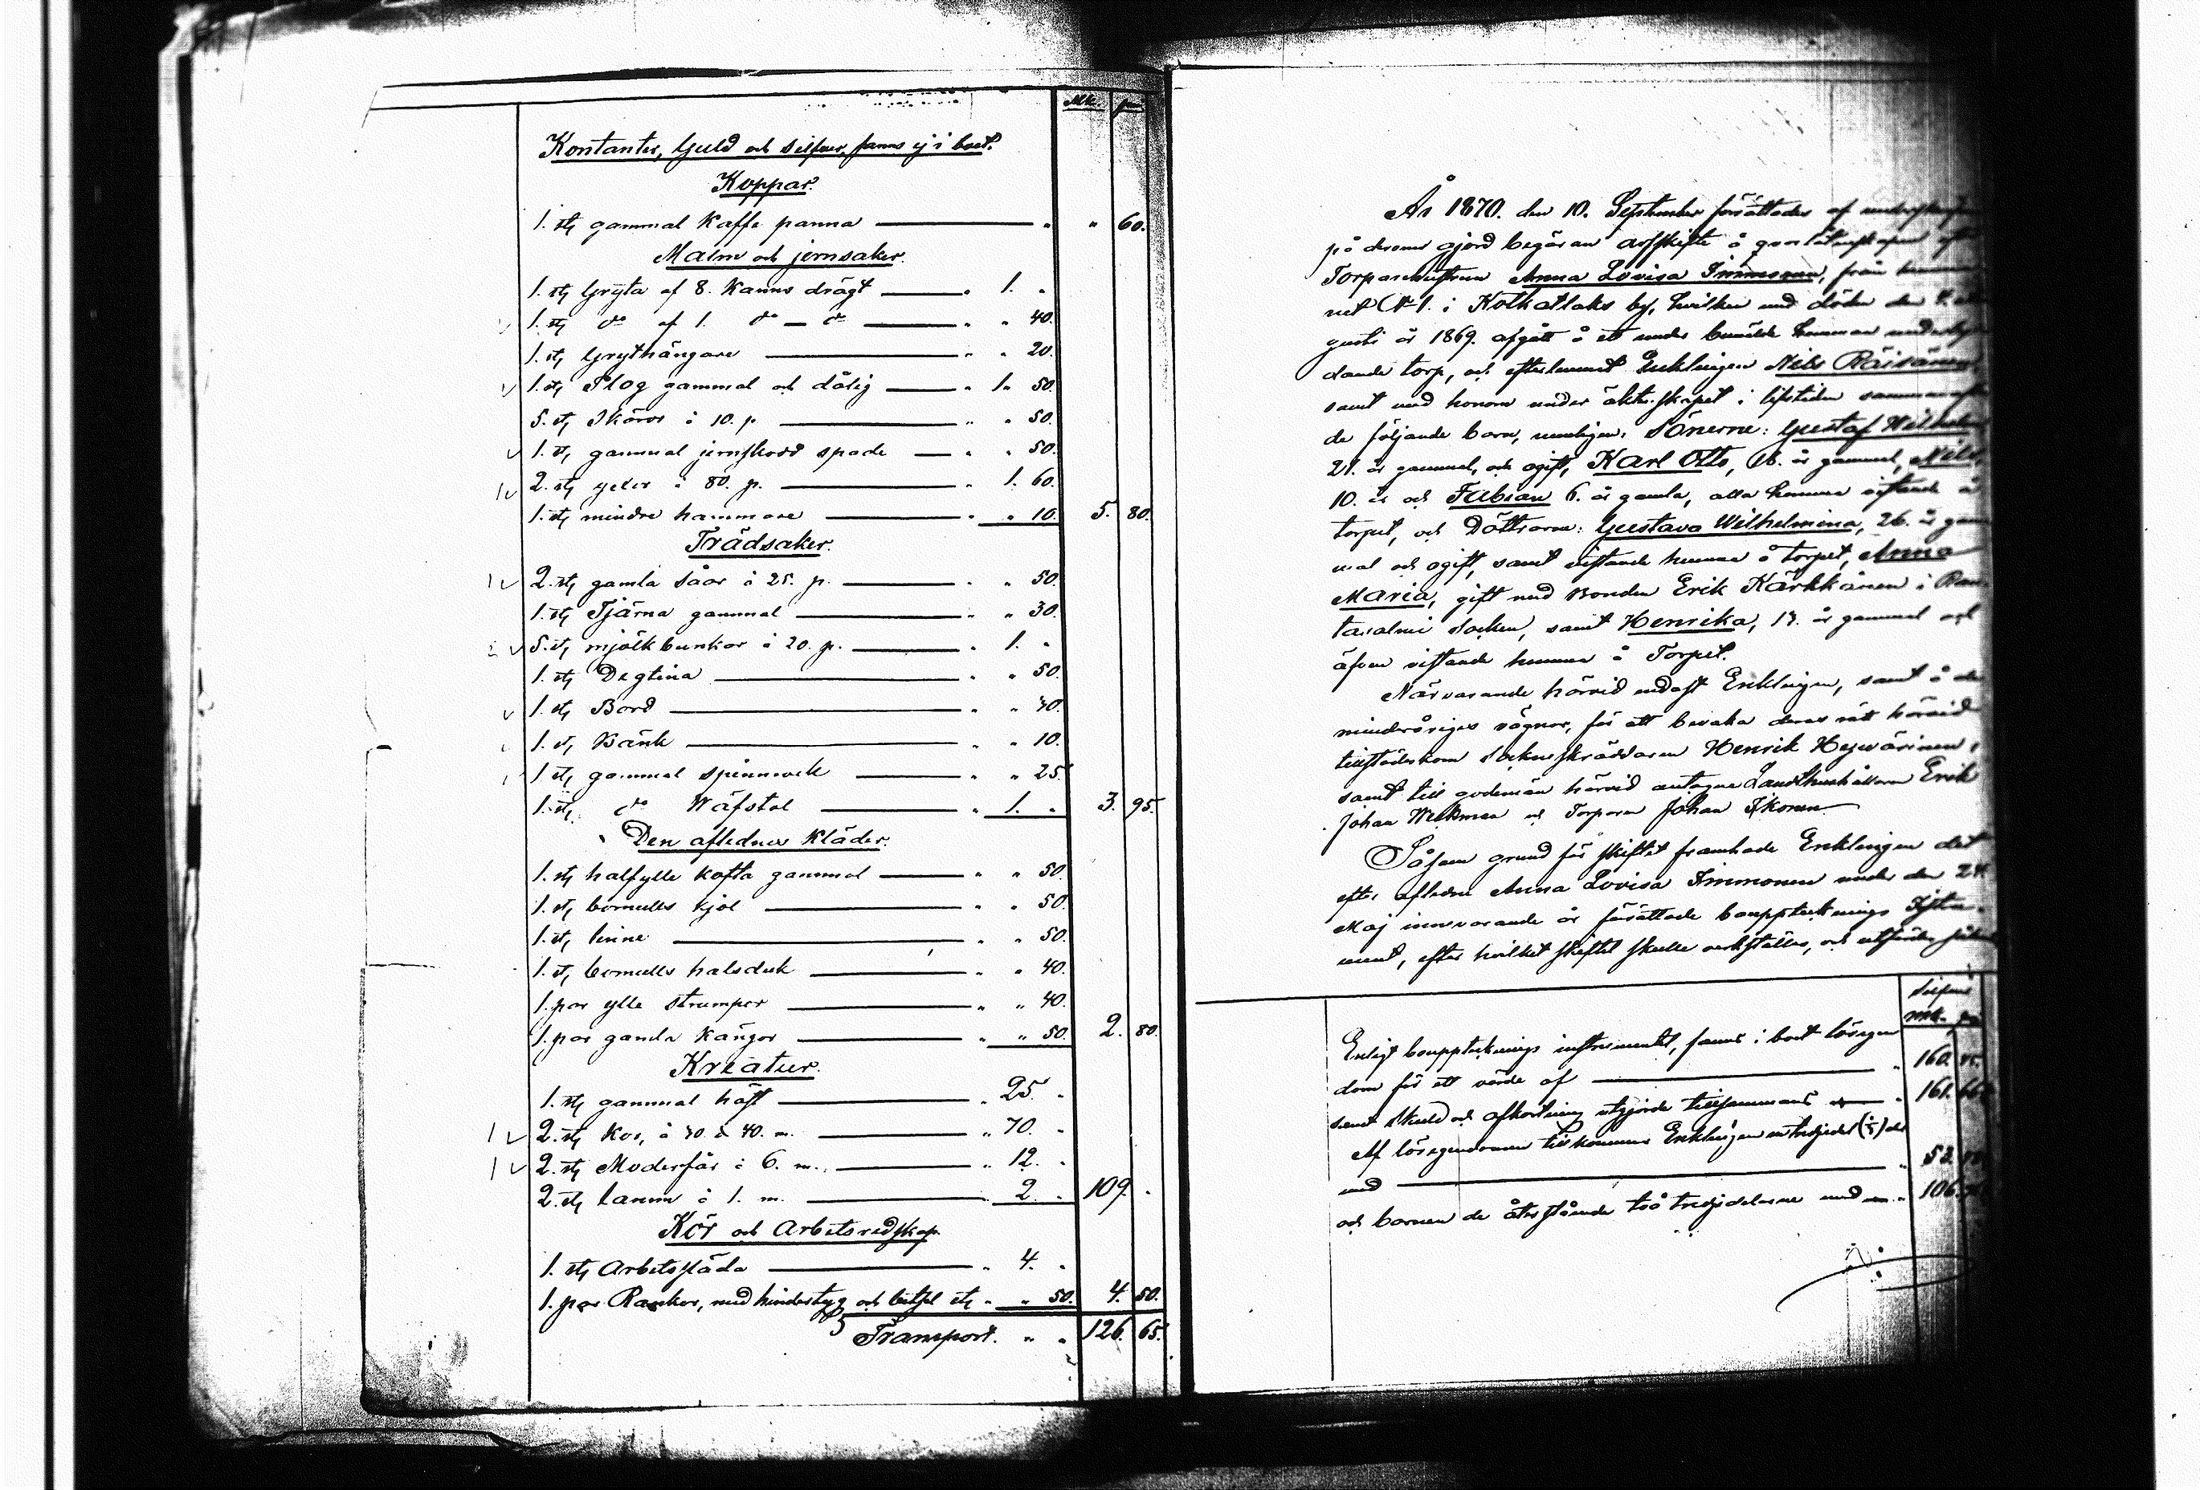 Mk. pni
Kontanter, Guld och Silfver, fanns ej i boet.
Koppar.
1. st. gammal Kaffe panna " " 60.
Malm och jernsaker.
1. st. Gryta af 8. Kanns drägt " 1. "
1. st. do af 1. do do " " 40.
1. st. Grythängare " " 20.
1. st. Plog gammal och dålig " 1" 50.
5. st. Skäror à 10. p " " 50.
1. st. gammal jernskodd spade " " 50.
2. st. yxor à 80. p. " 1. 60.
1. st. mindre hammare " " 10. 5. 80.
Trädsaker.
2. st. gamla Såar à 25. p. " " 50.
1. st. Tjärna gammal " " 30.
5. st. mjölkbunkar à 20. p. " 1. "
1. st. Degtina " " 50.
1. st. Bord " " 40.
1. st. Bänk " " 10.
1 st. gammal spinnrock " " 25.
1. st. do Wäfstol " 1. " 3. 95.
Den aflednes Kläder.
1. st. halfylle Kofta gammal " " 50.
1. st. bomulls Kjol " " 50.
1. st. linne " " 50.
1. st. bomulls halsduk " " 40.
1. par ylle strumpor " " 40.
1. par gamla Kängor " " 50. 2. 80.
Kreatur.
1. st. gammal häst " 25. "
2. st. Kor, à 30 à 40. m. " 70. "
2. st. Moderfår à 6. m. " 12. "
2. st. lamm à 1. m. " 2. " 109. "
Kör och Arbetsredskap
1. st. Arbetssläda " 4. "
1. par Rankor, med hindertyg och betsel st. " " 50. 4. 50.
Transport. " " 126. 65.
År 1870. den 10. September författades af
på derom gjord begäran arfskifte å qvarlåtenskapen efter
Torparehustrun Anna Lovisa Immonen, från
net No 1. i Kolkatlaks by, hvilken med döden den
gusti år 1869. afgått å ett under bemälde hemman
dande torp, och efterlemnat Enklingen Nils Räisänen,
samt med honom under äktenskapet i lifstiden
de följande barn, nemligen: Sönerne: Gustaf Wilhelm
21. år gammal, och ogift, Karl Otto, 18. år gammal, Nils,
10. år och Fabian 6. år gamla, alla hemma vistande å
torpet, och Döttrarne: Gustava Wilhelmina, 26. år gam
mal och ogift, samt vistande hemma å torpet, Anna
Maria, gift med Bonden Erik Kärkkäinen i Ran-
tasalmi Socken, samt Henrika, 13. år gammal och
äfven vistande hemma å Torpet.
Närvarande härvid endast Enklingen, samt å de
minderårigas vägnar, för att bevaka deras rätt härvid
tillstädeskom Sockneskräddaren Henrik
samt till godemän härvid antagne Landthushållaren Erik
Johan Weckman och Torparen Johan Ikonen
Såsom grund för skiftet framhade Enklingen det
efter aflidna Anna Lovisa Immonen under den 24.
Maj innevarande år författade bouppteckningsInstru-
ment, efter hvilket skiftet skulle verkställas, och
Silfver
mk. pni
Enligt bouppteckningsinstrumentet, fanns i boet lösegen
dom för ett värde af " 160.
samt skuld och afkortning utgjorde tillsammans " 161.
Af lösegendomen tillkommer Enklingen en tredjedel (1/3) del
med " 53.
och barnen de återstående två tredjedelarne med " 106.